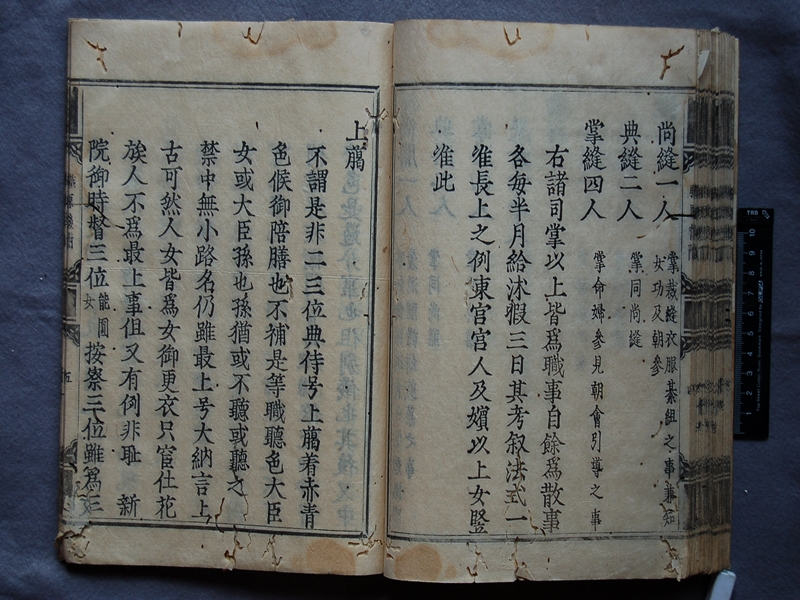 尚縫一人 掌裁縫衣服纂組之事兼知
女功及朝參
典縫二人 掌同尚縫
掌縫四人 掌命婦參見朝會引導之事
右諸司掌以上皆爲職事自餘爲散事
各每半月給沐假三日其考叙法式一
准長上之例東宮宮人及嬪以上女竪
准此
上﨟
不謂是非二三位典侍号上﨟着赤青
色候御陪膳也不補是等職聽色大臣
女或大臣孫也孫猶或不聽或聽之
禁中無小路名仍雖最上号大納言上
古可然人女皆爲女御更衣只宦仕花
族人不爲最上事但又有例非耻 新
院御時督三位能圓女按察三位雖爲三